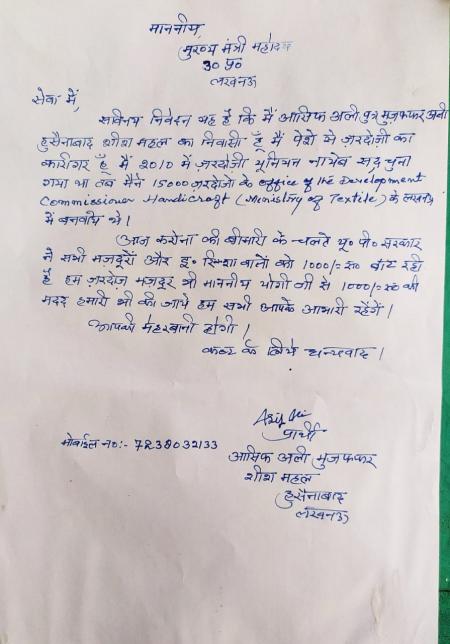 माननीय,
मुख्य मंत्री महोदय
उ० प्र०
लखनऊ
सेवा में,
सविनय निवेदन यह है कि मैं आसिफ अली पुत्र मुजफ्फर अली
हुसैनाबाद शीश महल का निवासी हूँ मैं पेशे से ज़रदोज़ी का
कारीगर हूँ मैं 2010 में ज़रदोज़ी यूनियन नायब सद्र चुना
गया था तब मैंने 15000 ज़रदोज़ी के office of the Development
Commissioner Handicraft (Ministry of Textile) के लखनऊ
में बनवाये थे।
आज करोना की बीमारी के चलते यू० पी० सरकार
ने सभी मजदूरों और इ० रिक्शा वालों को 1000/= रु० बांट रही
है हम ज़रदोज़ मजदूर भी माननीय योगी जी से 1000/= रु० की
मदद हमारी भी की जाये हम सभी आपके आभारी रहेंगें।
आपकी मेहरबानी होगी।
के लिये धन्यवाद।
Asif Ali
प्रार्थी
मोबाईल न०:- 7238032133
आसिफ अली मुजफ्फर
शीश महल
हुसैनाबाद
लखनऊ